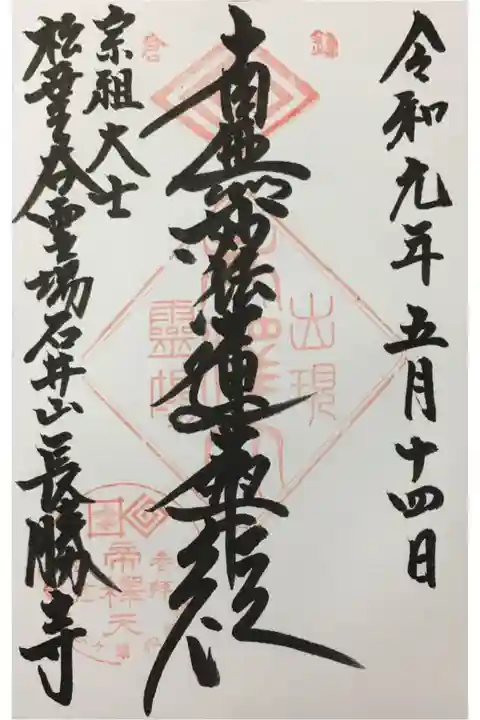 令和元年五月十四日
南無妙法蓮華経
宗祖大士
松葉谷霊場石井山長勝寺
鎌
倉
出現
靈場
帝釋天